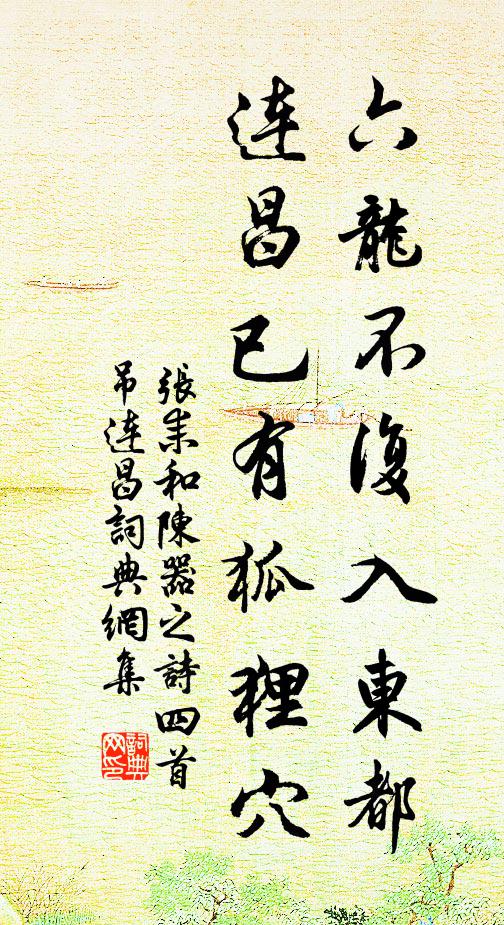 六龍不復入東都
連昌已有狐狸穴
張耒和陳器之詩四首
吊連昌詞典網集
詞典
网印